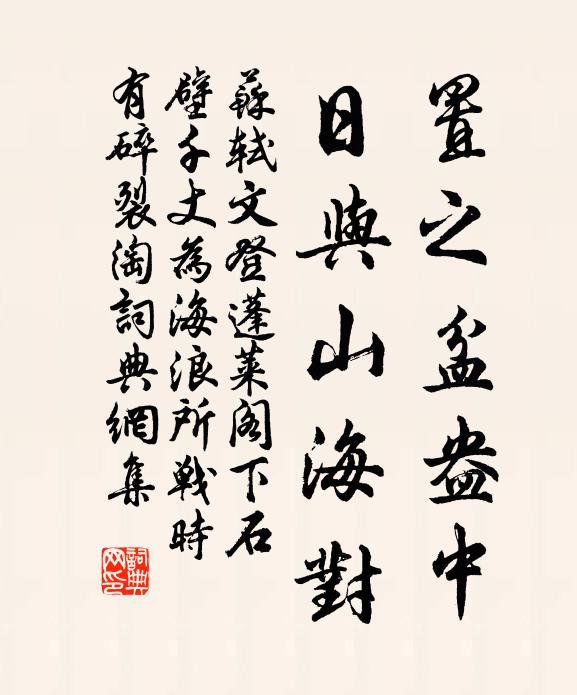 置之盆盎中
日與山海對
蘇軾文登蓬萊閣下石
壁千丈為海浪所戰時
有碎裂淘詞典網集
詞典網印